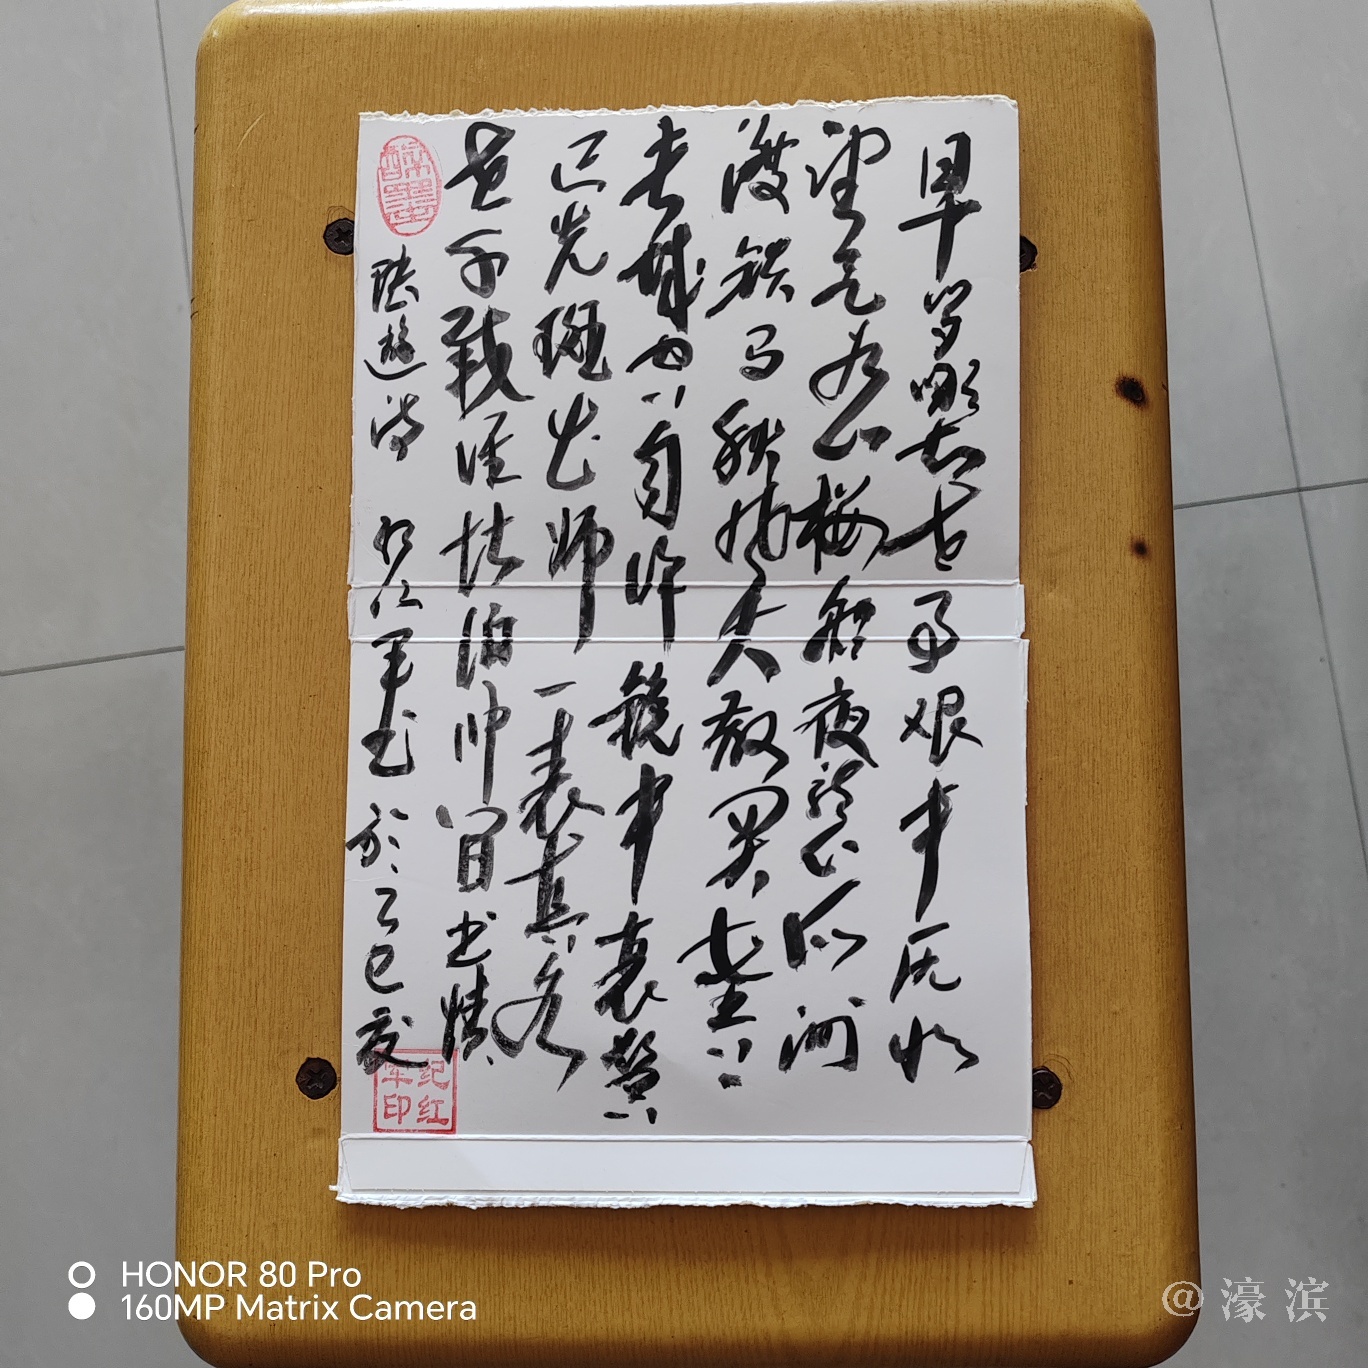 早岁那知世事艰中原北
望气如山楼船夜雪瓜洲
渡铁马秋风大散关塞上
长城空自许镜中衰鬓
已先斑出师一表真名
世千载谁堪伯仲间书愤
陆遊诗 纪红军书於乙巳夏
纪红军印
HONOR 80 Pro
160MP Matrix Camera
@濠滨